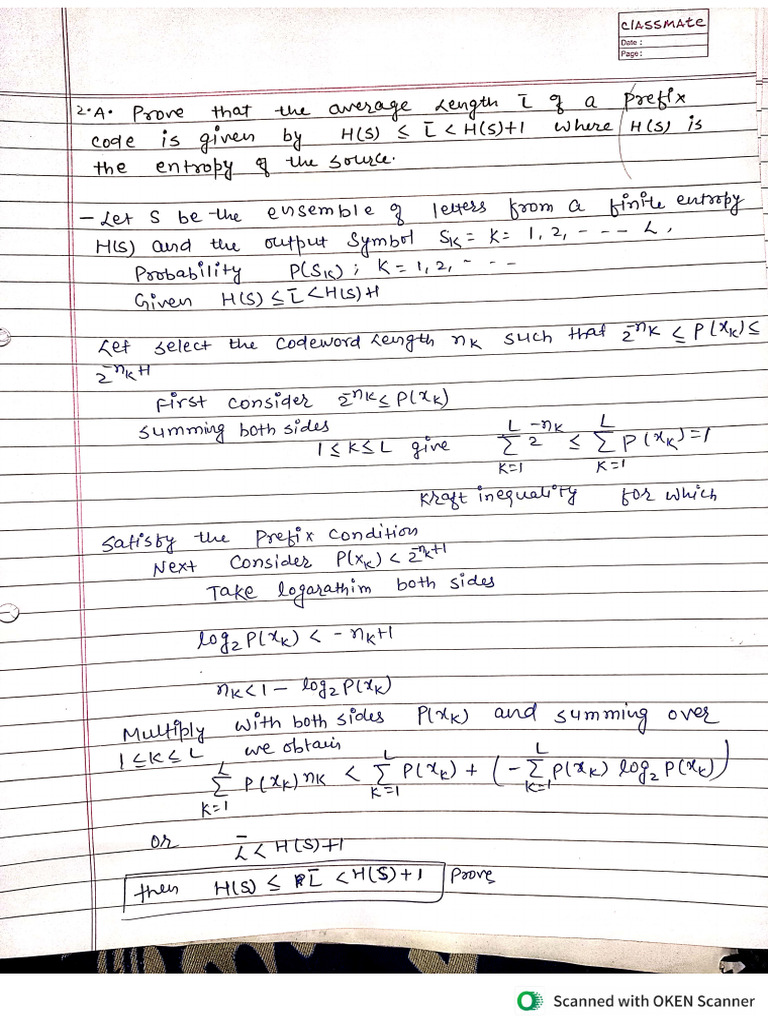 CLASSMATE
Date :
Page :
2.A. Prove that the average Length L̄ of a prefix
code is given by H(S) ≤ L̄ < H(S)+1 where H(S) is
the entropy of the source.
- Let S be the ensemble of letters from a finite entropy
H(S) and the output symbol S_K = K = 1, 2, - - - - L,
Probability P(S_K) ; K = 1, 2, - - -
Given H(S) ≤ L̄ < H(S)+1
Let select the codeword Length n_K such that 2^{-n_K} ≤ P(x_K) ≤
2^{-n_K+1}
First consider 2^{-n_K} ≤ P(x_K)
summing both sides
1 ≤ K ≤ L give ∑_{K=1}^{L} 2^{-n_K} ≤ ∑_{K=1}^{L} P(x_K) = 1
Kraft inequality for which
Satisby the Prefix Condition
Next Consider P(x_K) < 2^{-n_K+1}
Take logarathim both sides
log₂ P(x_K) < - n_K+1
n_K < 1 - log₂ P(x_K)
Multiply with both sides P(x_K) and summing over
1 ≤ K ≤ L we obtain
∑_{K=1}^{L} P(x_K) n_K < ∑_{K=1}^{L} P(x_K) + (-∑_{K=1}^{L} P(x_K) log₂ P(x_K))
or
L̄ < H(S)+1
then H(S) ≤ L̄ < H(S)+1 Prove
Scanned with OKEN Scanner